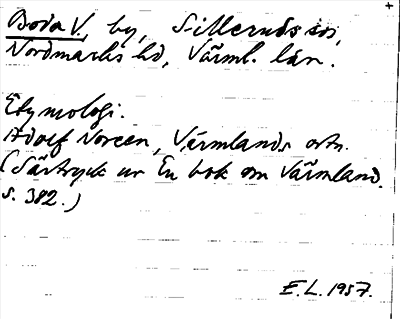 Boda V., by, Silleruds sn,
Nordmarks hd, Värml. län.
Etymologi.
Adolf Noreen, Värmlands ortn.
(Särtryck ur En bok om Värmland.
s. 382.)
E.L. 1957.